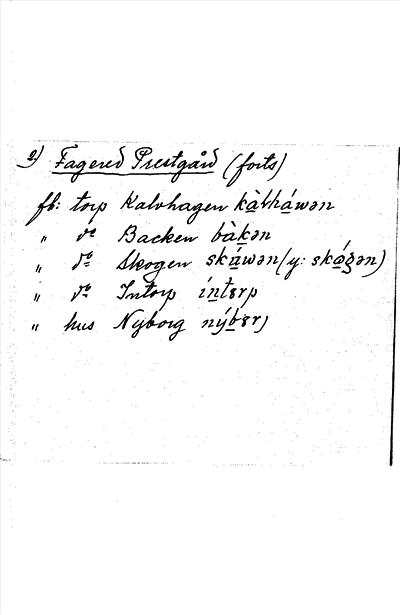 2) Fagered Prestgård (forts)
fb: torp Kalvhagen kàlvháwən
" do Backen bàkən
" do Skogen skáwən (y: skógən)
" do Intorp íntɤrp
" hus Nyborg nýbɤrj